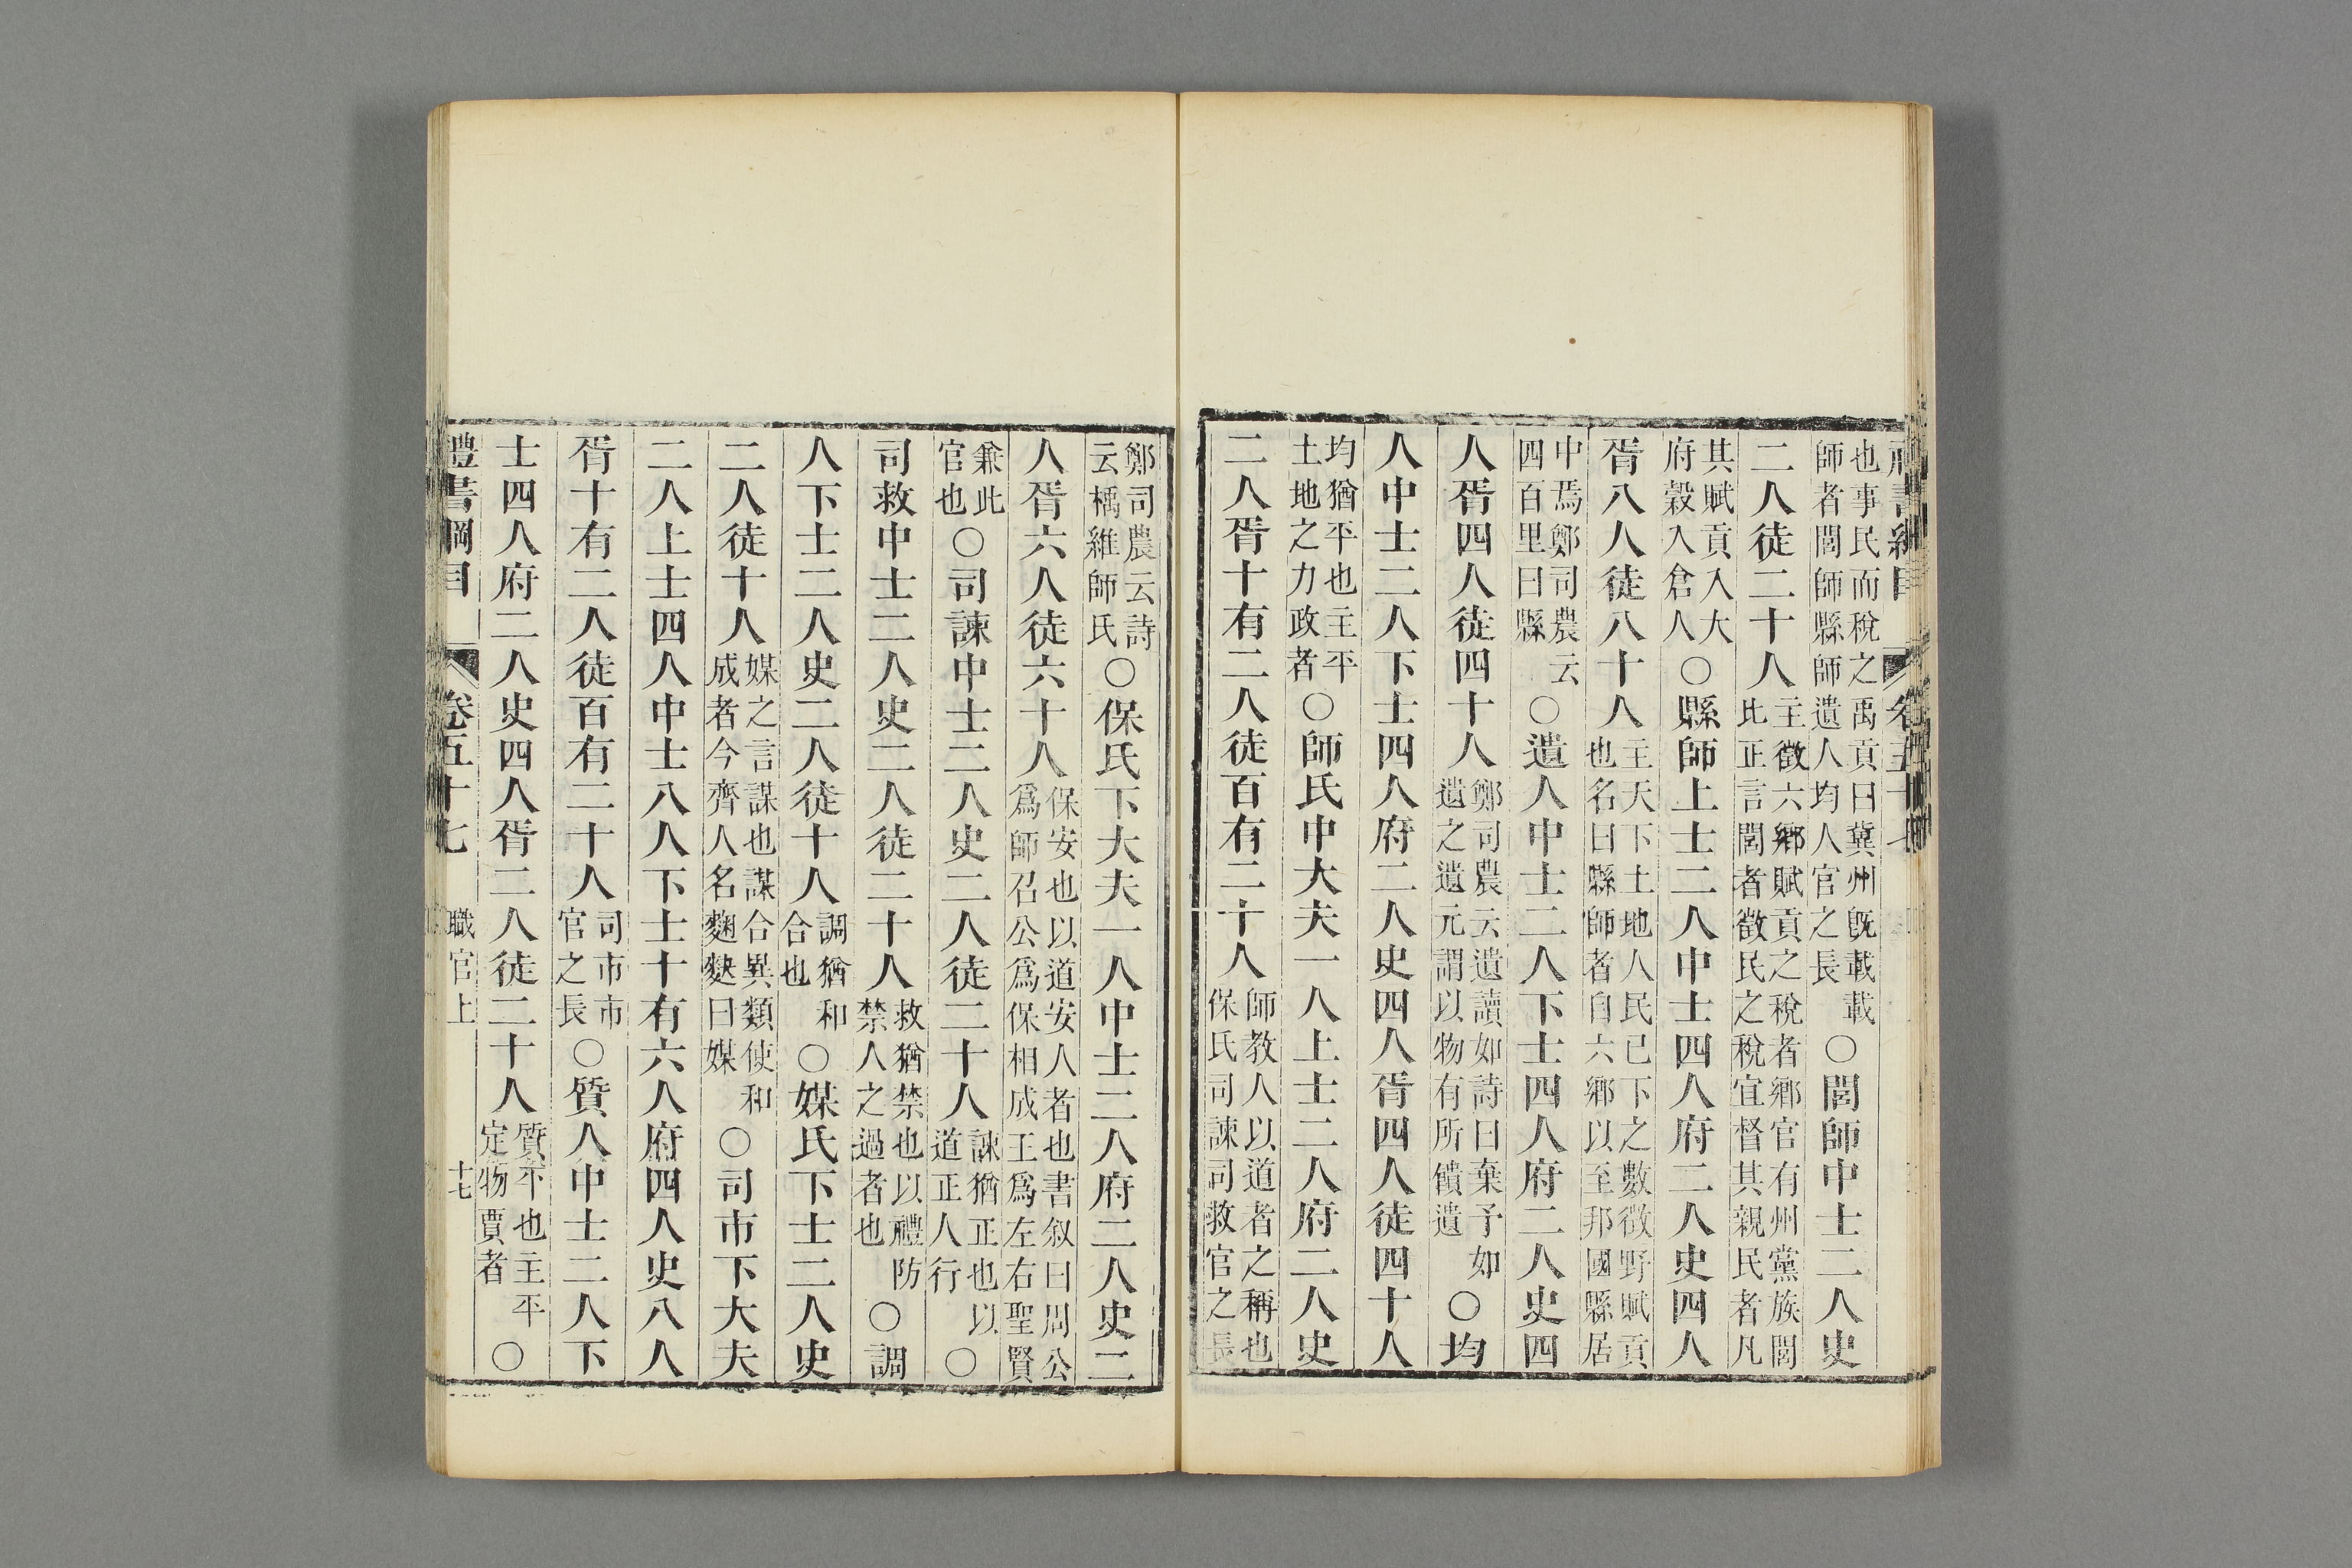 也事民而稅之禹貢曰冀州旣載載
師者閭師縣師遺人均人官之長
○閭師中士二人史
二人徒二十人
主徵六鄉賦貢之稅者鄉官有州黨族閭
比正言閭者徵民之稅宜督其親民者凡
其賦貢入大
府穀入倉人
○縣師上士二人中士四人府二人史四人
胥八人徒八十人
主天下土地人民已下之數徵野賦貢
也名曰縣師者自六鄉以至邦國縣居
中焉鄭司農云
四百里曰縣
○遺人中士二人下士四人府二人史四
人胥四人徒四十人
鄭司農云遺讀如詩曰棄予如
遺之遺元謂以物有所饋遺
○均
人中士二人下士四人府二人史四人胥四人徒四十人
均猶平也主平
土地之力政者
○師氏中大夫一人上士二人府二人史
二人胥十有二人徒百有二十人
師教人以道者之稱也
保氏司諫司救官之長
鄭司農云詩
云楀維師氏
○保氏下大夫一人中士二人府二人史二
人胥六人徒六十人
保安也以道安人者也書叙曰周公
爲師召公爲保相成王爲左右聖賢
兼此
官也
○司諫中士二人史二人徒二十人
諫猶正也以
道正人行
○
司救中士二人史二人徒二十人
救猶禁也以禮防
禁人之過者也
○調
人下士二人史二人徒十人
調猶和
合也
○媒氏下士二人史
二人徒十人
媒之言謀也謀合異類使和
成者今齊人名麴䴷曰媒
○司市下大夫
二人上士四人中士八人下士十有六人府四人史八人
胥十有二人徒百有二十人
司市市
官之長
○質人中士二人下
士四人府二人史四人胥二人徒二十人
質平也主平
定物賈者
○
禮書綱目 卷五十七 職官上 十七